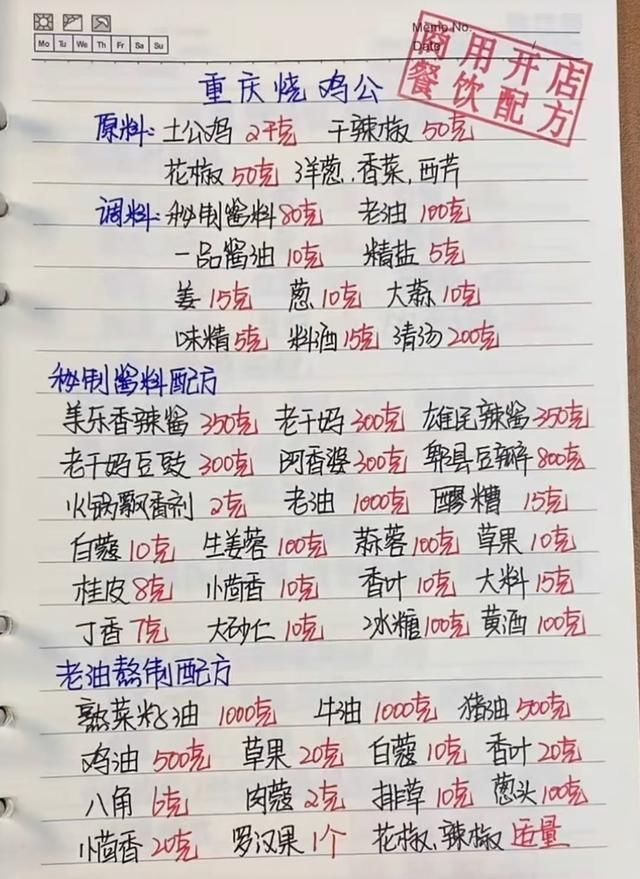 Memo No.
Mo Tu We Th Fr Sa Su
Date
商用开店
餐饮配方
重庆烧鸡公
原料:土公鸡 2千克 干辣椒 50克
花椒 50克 洋葱,香菜,西芹
调料:秘制酱料 80克 老油 100克
一品酱油 10克 精盐 5克
姜 15克 葱 10克 大蒜 10克
味精 5克 料酒 15克 清汤 200克
秘制酱料配方
美乐香辣酱 350克 老干妈 300克 雄民辣酱 350克
老干妈豆豉 300克 阿香婆 300克 郫县豆瓣 800克
火锅飘香剂 2克 老油 1000克 醪糟 15克
白蔻 10克 生姜蓉 100克 蒜蓉 100克 草果 10克
桂皮 8克 小茴香 10克 香叶 10克 大料 15克
丁香 7克 大砂仁 10克 冰糖 100克 黄酒 100克
老油熬制配方
熟菜籽油 1000克 牛油 1000克 猪油 500克
鸡油 500克 草果 20克 白蔻 10克 香叶 20克
八角 6克 肉蔻 2克 排草 10克 葱头 100克
小茴香 20克 罗汉果 1个 花椒、辣椒 适量